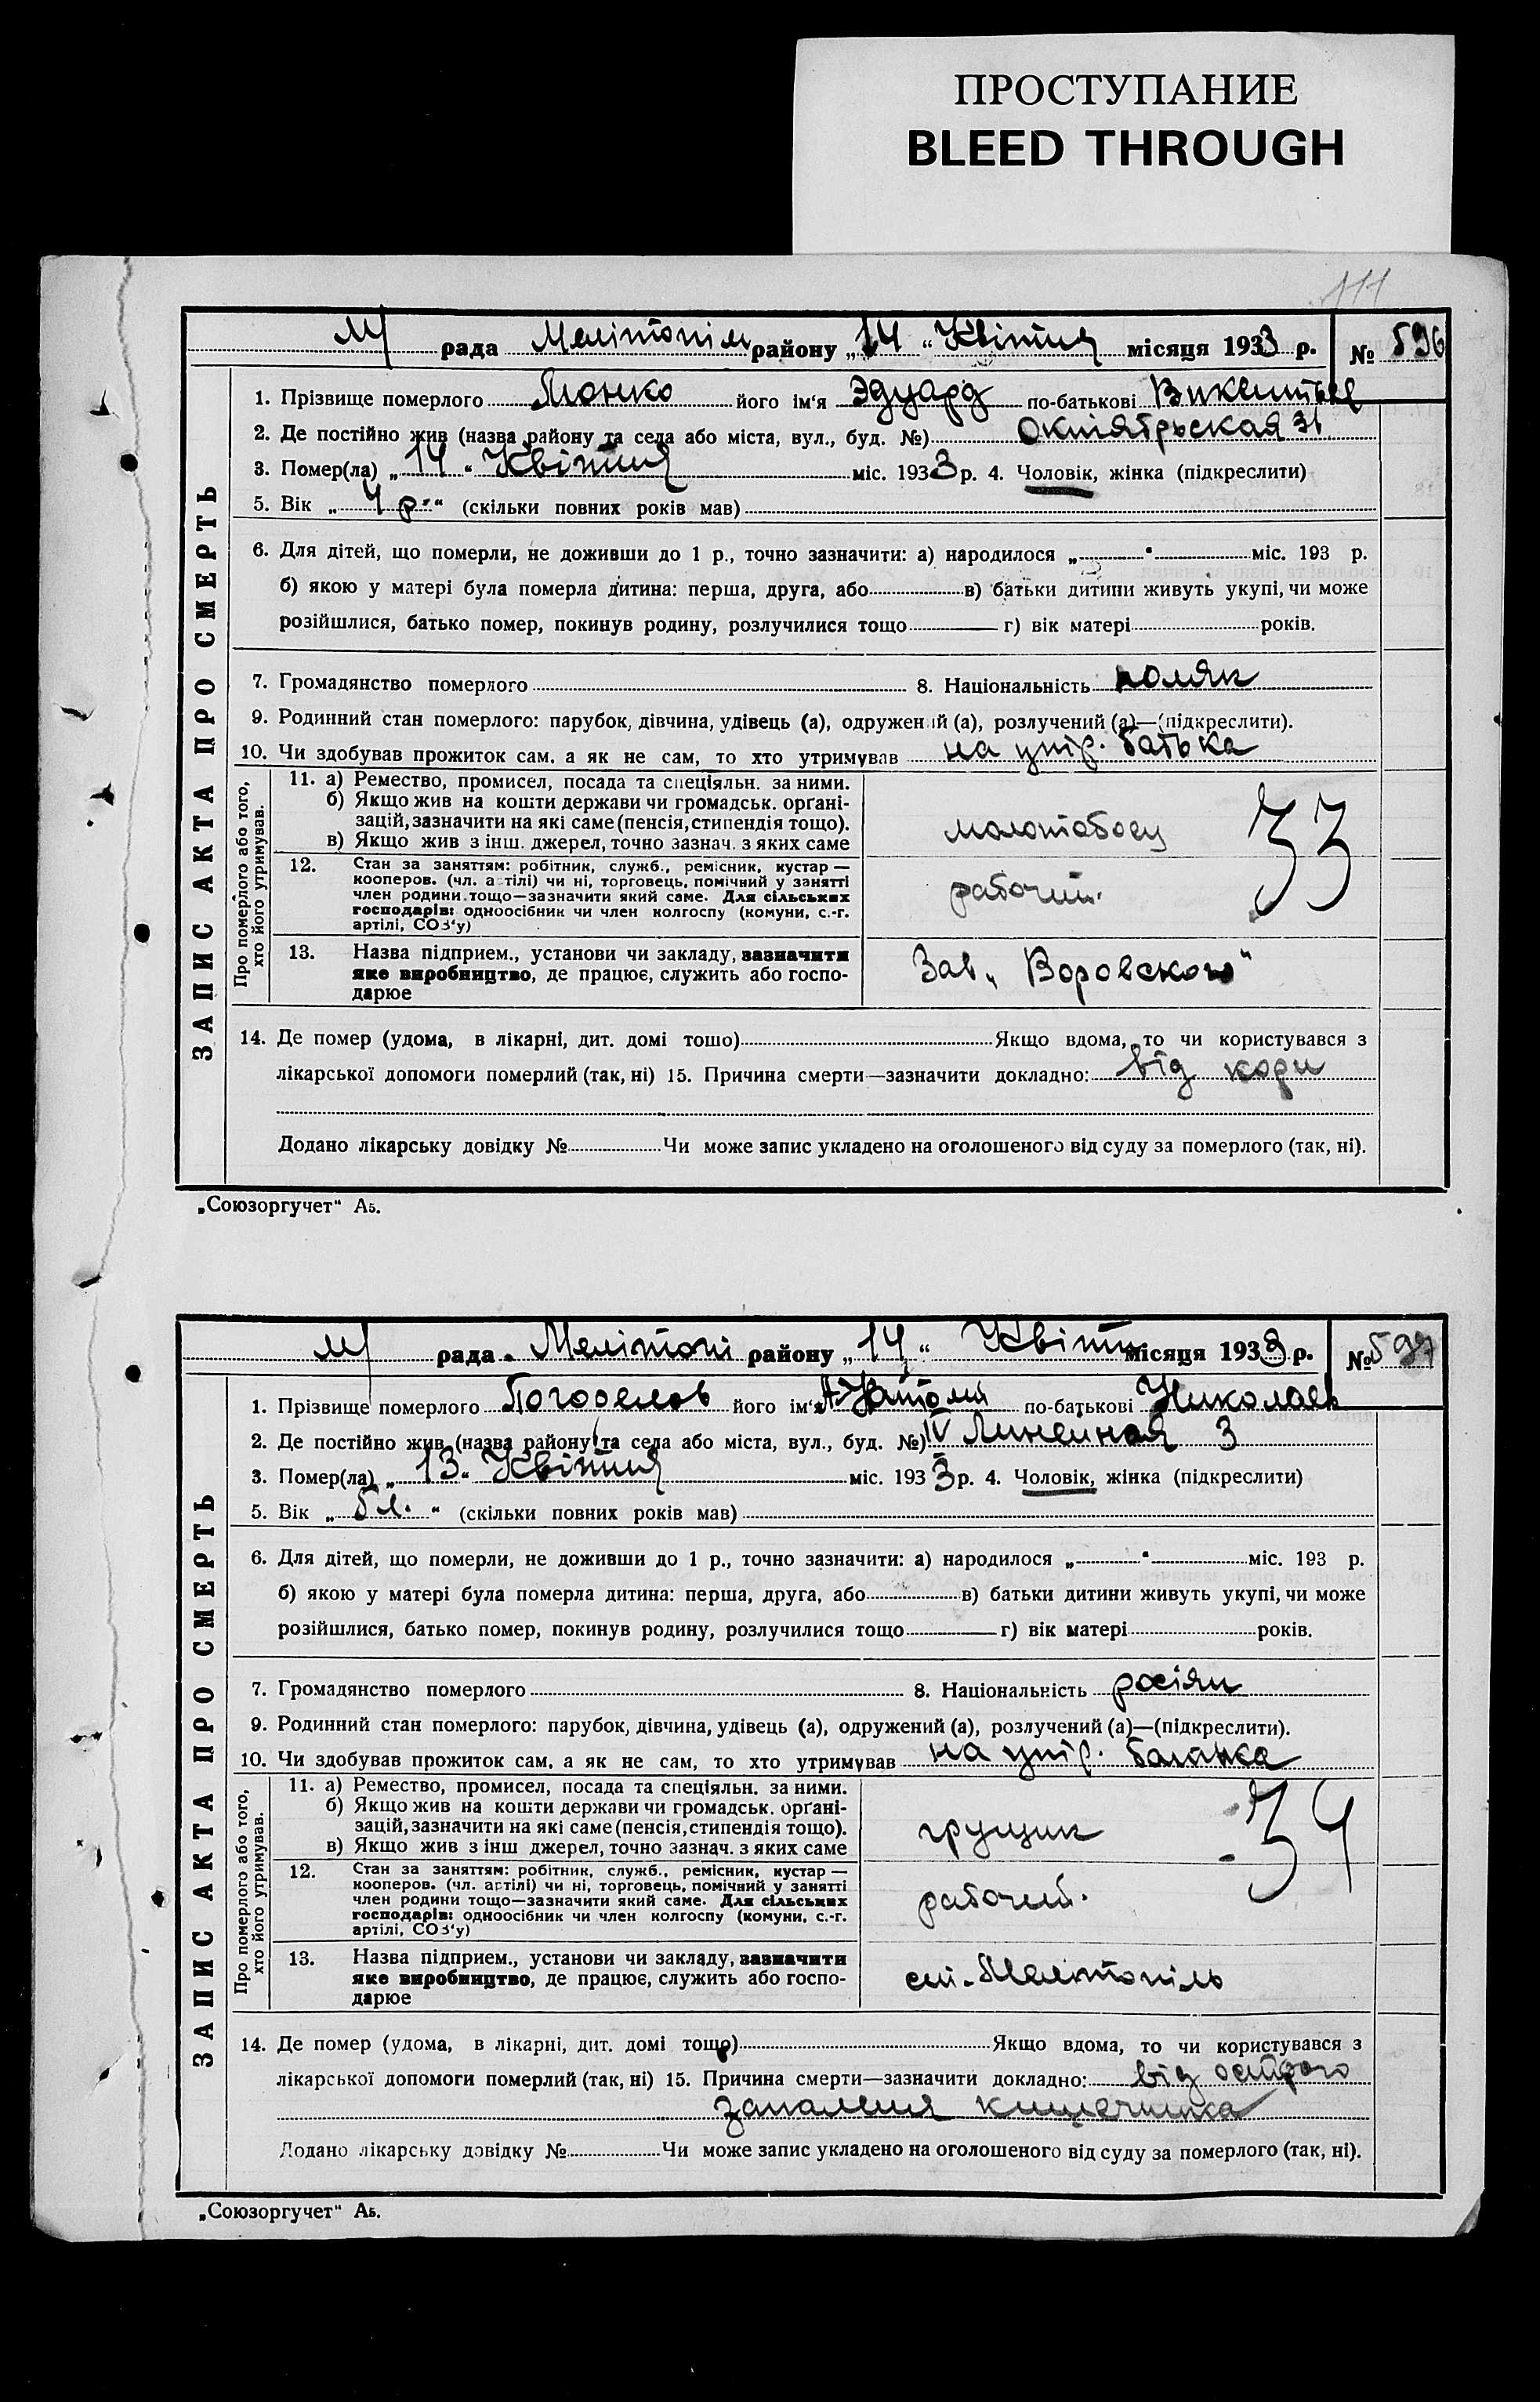 ПРОСТУПАНИЕ
BLEED THROUGH
111
м/ рада Мелітопіль району „14“ Квітня місяця 1933 р. № 596
ЗАПИС АКТА ПРО СМЕРТЬ
1. Прізвище померлого його ім'я Эдуард по-батькові Викентьев
2. Де постійно жив (назва району та села або міста, вул., буд. №) Октябрьская 31
3. Помер(ла) „14“ Квітня міс. 1933 р. 4. Чоловік, жінка (підкреслити)
5. Вік „4 р.“ (скільки повних років мав)
6. Для дітей, що померли, не доживши до 1 р., точно зазначити: а) народилося „ “ міс. 193 р.
б) якою у матері була померла дитина: перша, друга, або в) батьки дитини живуть укупі, чи може
розійшлися, батько помер, покинув родину, розлучилися тощо г) вік матері років.
7. Громадянство померлого 8. Національність поляк
9. Родинний стан померлого: парубок, дівчина, удівець (а), одружений (а), розлучений (а)—(підкреслити).
10. Чи здобував прожиток сам, а як не сам, то хто утримував на утр. батька
Про померлого або того, хто його утримував.
11. а) Ремество, промисел, посада та спеціяльн. за ними.
б) Якщо жив на кошти держави чи громадськ. орґані-
зацій, зазначити на які саме (пенсія, стипендія тощо).
в) Якщо жив з інш. джерел, точно зазнач. з яких саме
молотобоец 33
12. Стан за заняттям: робітник, служб., ремісник, кустар —
кооперов. (чл. артілі) чи ні, торговець, помічний у занятті
член родини тощо—зазначити який саме. Для сільських
господарів: одноосібник чи член колгоспу (комуни, с.-г.
артілі, СОЗ'у)
рабочий.
13. Назва підприєм., установи чи закладу, зазначити
яке виробництво, де працює, служить або госпо-
дарює
Зав „Воровского“
14. Де помер (удома, в лікарні, дит. домі тощо) Якщо вдома, то чи користувався з
лікарської допомоги померлий (так, ні) 15. Причина смерти—зазначити докладно: від кори
Додано лікарську довідку № Чи може запис укладено на оголошеного від суду за померлого (так, ні).
„Союзоргучет“ А5.
м/ рада Мелітопі району „14“ Квітн місяця 1933 р. № 597
ЗАПИС АКТА ПРО СМЕРТЬ
1. Прізвище померлого Погорелов його ім'я Анатолій по-батькові Николаев
2. Де постійно жив (назва району та села або міста, вул., буд. №) IV Линейная 3
3. Помер(ла) „13“ Квітня міс. 1933 р. 4. Чоловік, жінка (підкреслити)
5. Вік „5 л.“ (скільки повних років мав)
6. Для дітей, що померли, не доживши до 1 р., точно зазначити: а) народилося „ “ міс. 193 р.
б) якою у матері була померла дитина: перша, друга, або в) батьки дитини живуть укупі, чи може
розійшлися, батько помер, покинув родину, розлучилися тощо г) вік матері років.
7. Громадянство померлого 8. Національність росіян
9. Родинний стан померлого: парубок, дівчина, удівець (а), одружений (а), розлучений (а)—(підкреслити).
10. Чи здобував прожиток сам, а як не сам, то хто утримував на утр. батька
Про померлого або того, хто його утримував.
11. а) Ремество, промисел, посада та спеціяльн. за ними.
б) Якщо жив на кошти держави чи громадськ. орґані-
зацій, зазначити на які саме (пенсія, стипендія тощо).
в) Якщо жив з інш джерел, точно зазнач. з яких саме
грущик 34
12. Стан за заняттям: робітник, служб., ремісник, кустар —
кооперов. (чл. артілі) чи ні, торговець, помічний у занятті
член родини тощо—зазначити який саме. Для сільських
господарів: одноосібник чи член колгоспу (комуни, с.-г.
артілі, СОЗ'у)
рабочий.
13. Назва підприєм., установи чи закладу, зазначити
яке виробництво, де працює, служить або госпо-
дарює
ст. Мелітопіль
14. Де помер (удома, в лікарні, дит. домі тощо) Якщо вдома, то чи користувався з
лікарської допомоги померлий (так, ні) 15. Причина смерти—зазначити докладно: від острого
запалення кишечника
Додано лікарську довідку № Чи може запис укладено на оголошеного від суду за померлого (так, ні).
„Союзоргучет“ А5.